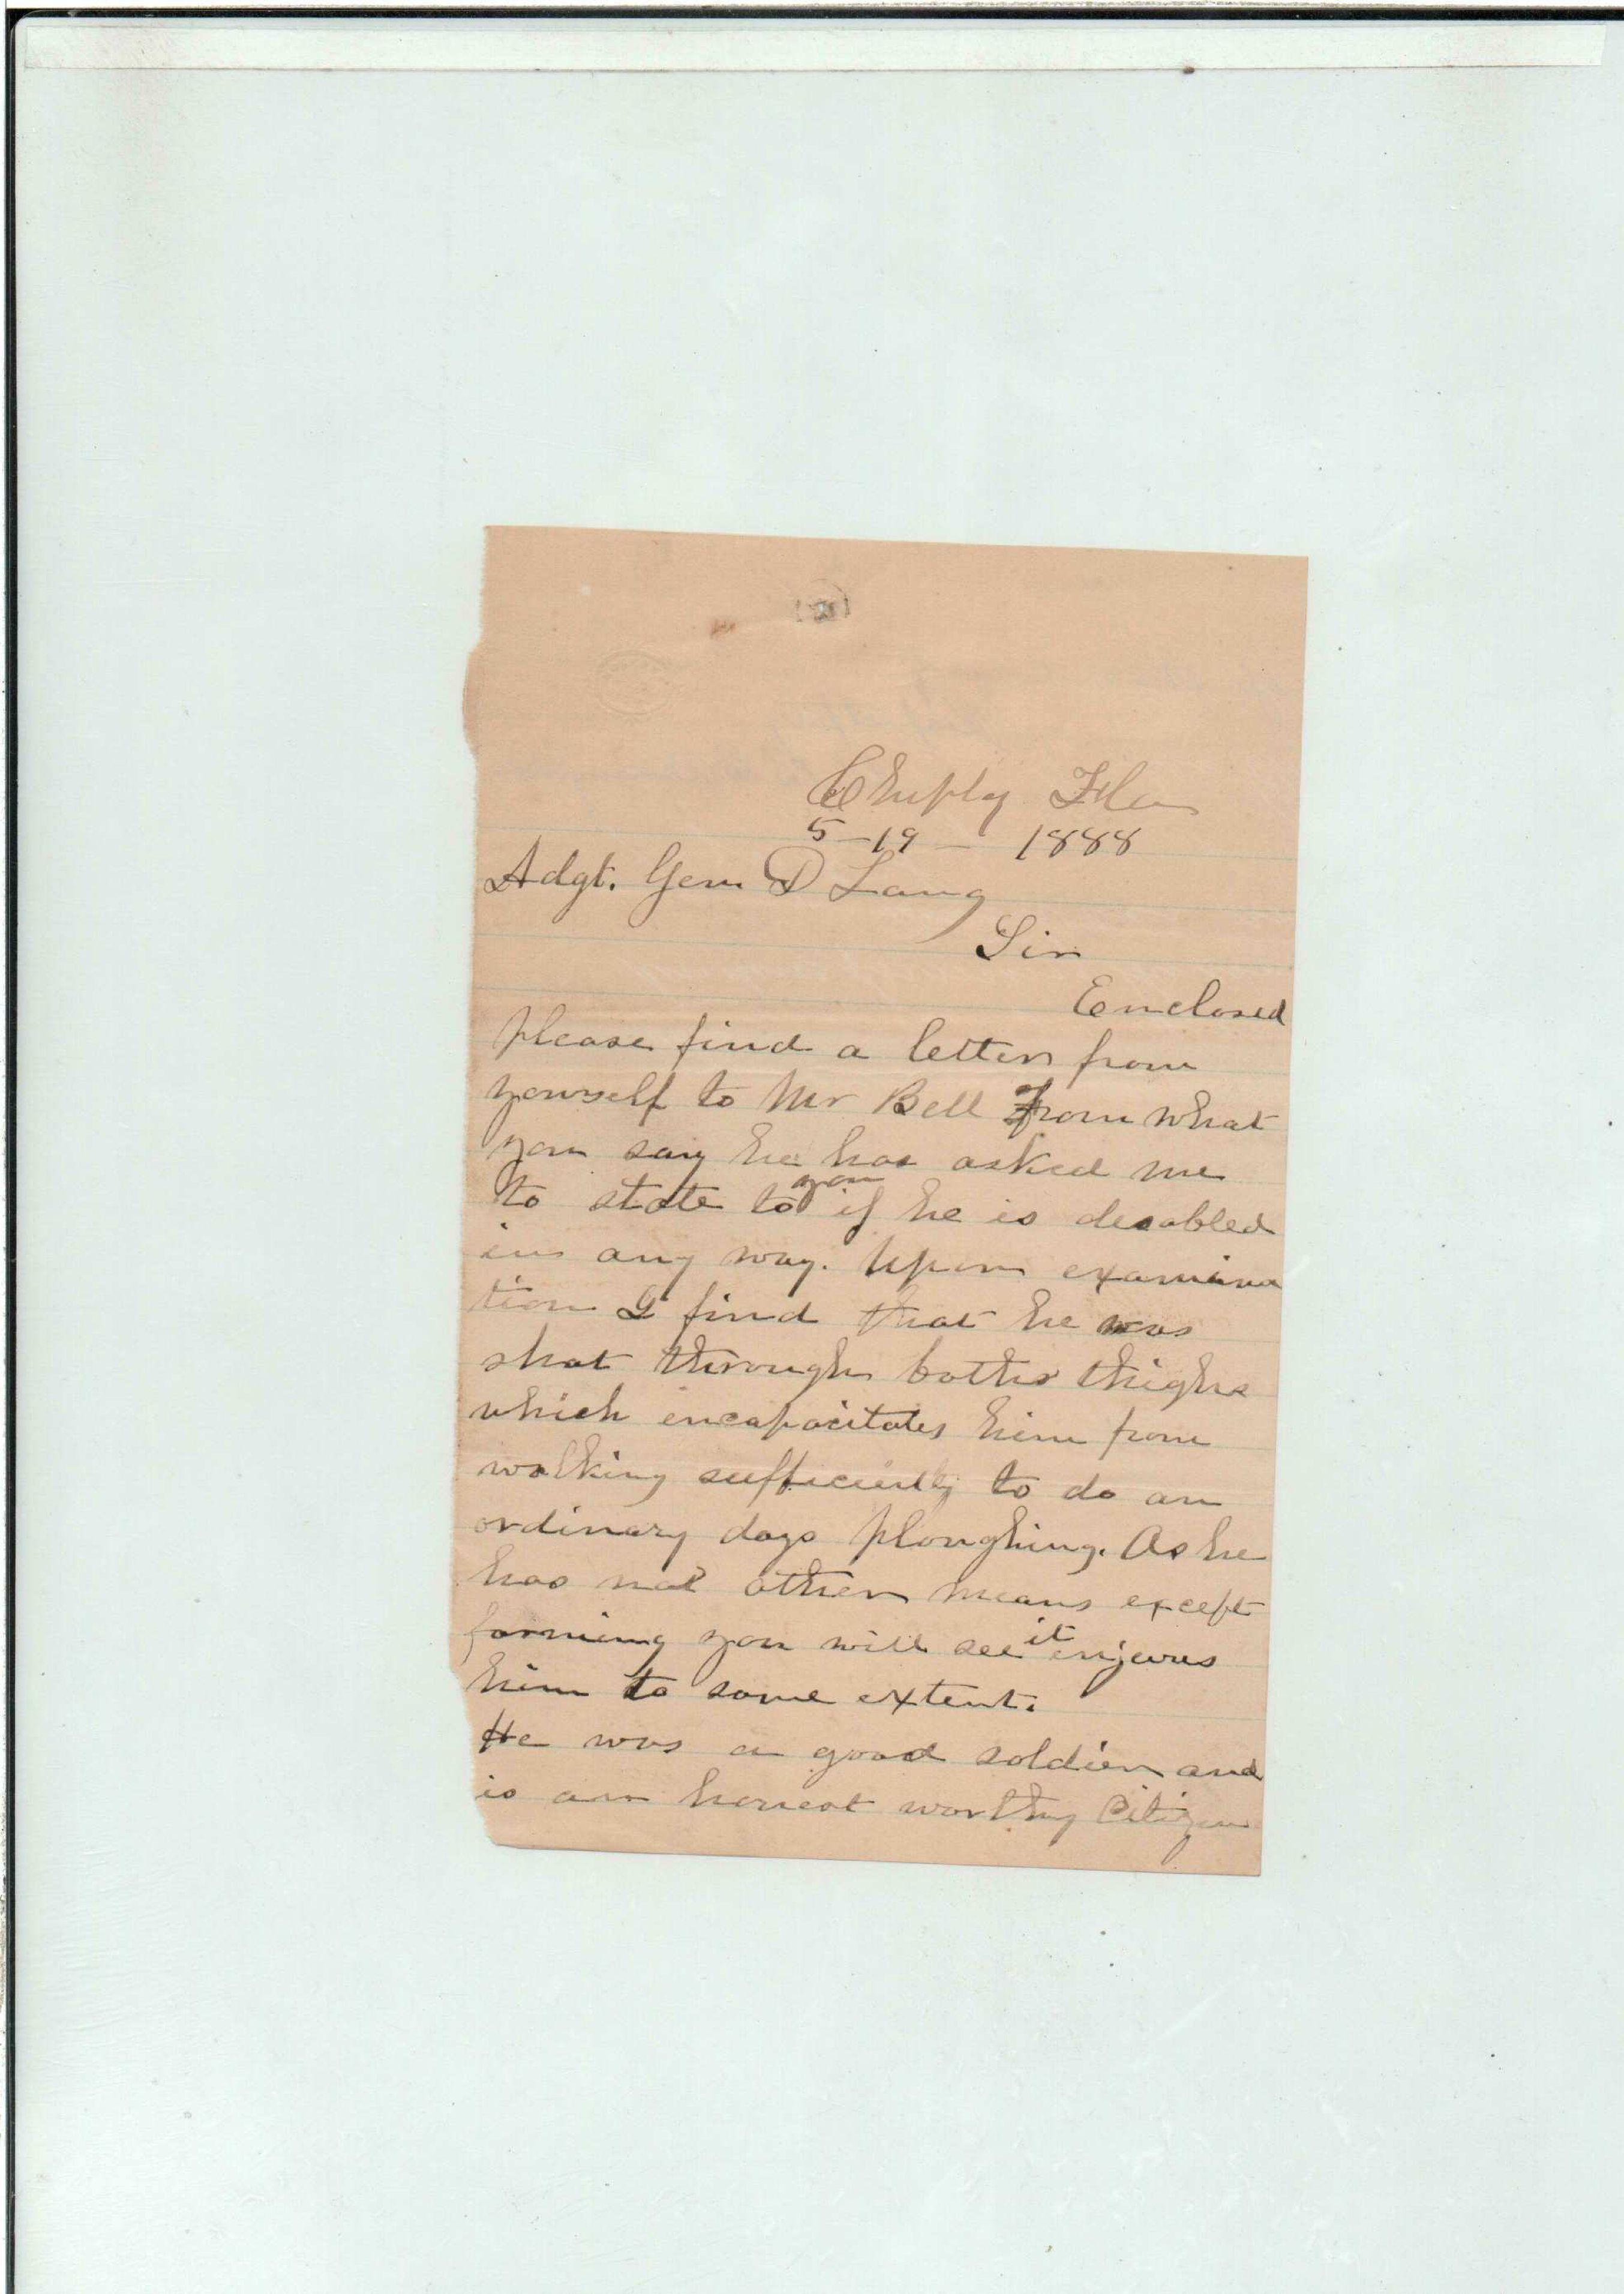 Chipley Fla
5-19- 1888
Adgt. Gen D Lang
Sir
Enclosed
please find a letter from
yourself to Mr Bell From what
you say he has asked me
to state to you if he is desabled
in any way. Upon examina
tion I find that he was
shot through boths thighs
which encapacitates him from
walking sufficiently to do an
ordinary days ploughing. As he
has not other means except
farming you will see it enjures
him to some extent.
He was a good soldier and
is an honest worthy Citizen